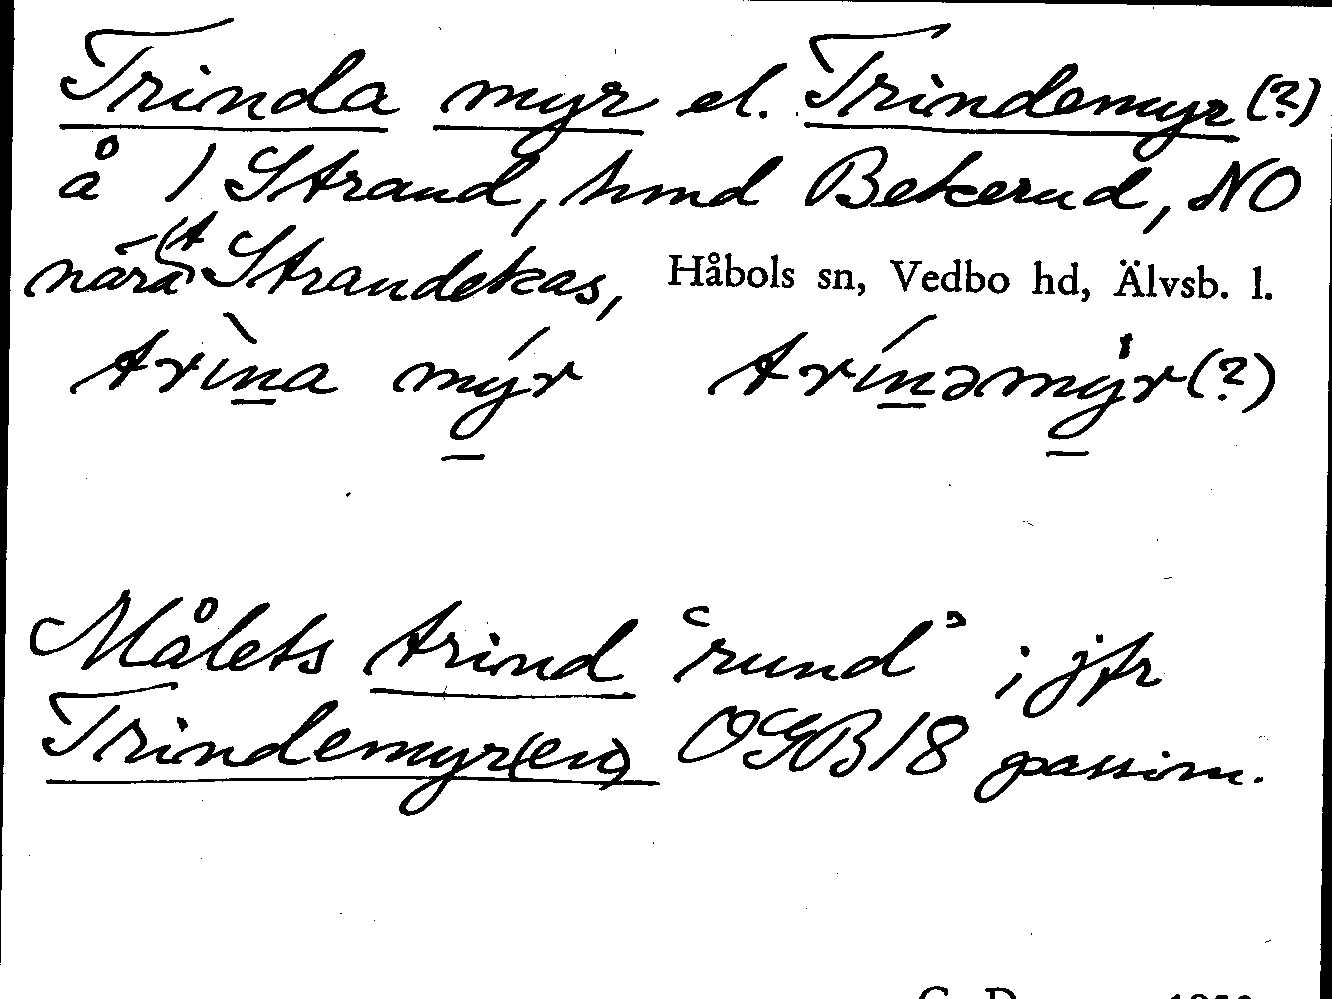 Trinda myr el. Trindemyr (?)
å 1 Strand, hmd Bekerud, NO
nära (t Strandekas, Håbols sn, Vedbo hd, Älvsb. l.
trìna mýr trínəmy̍r (?)
Målets trind “rund” ; jfr
Trindemyr(en) OGB 18 passim.